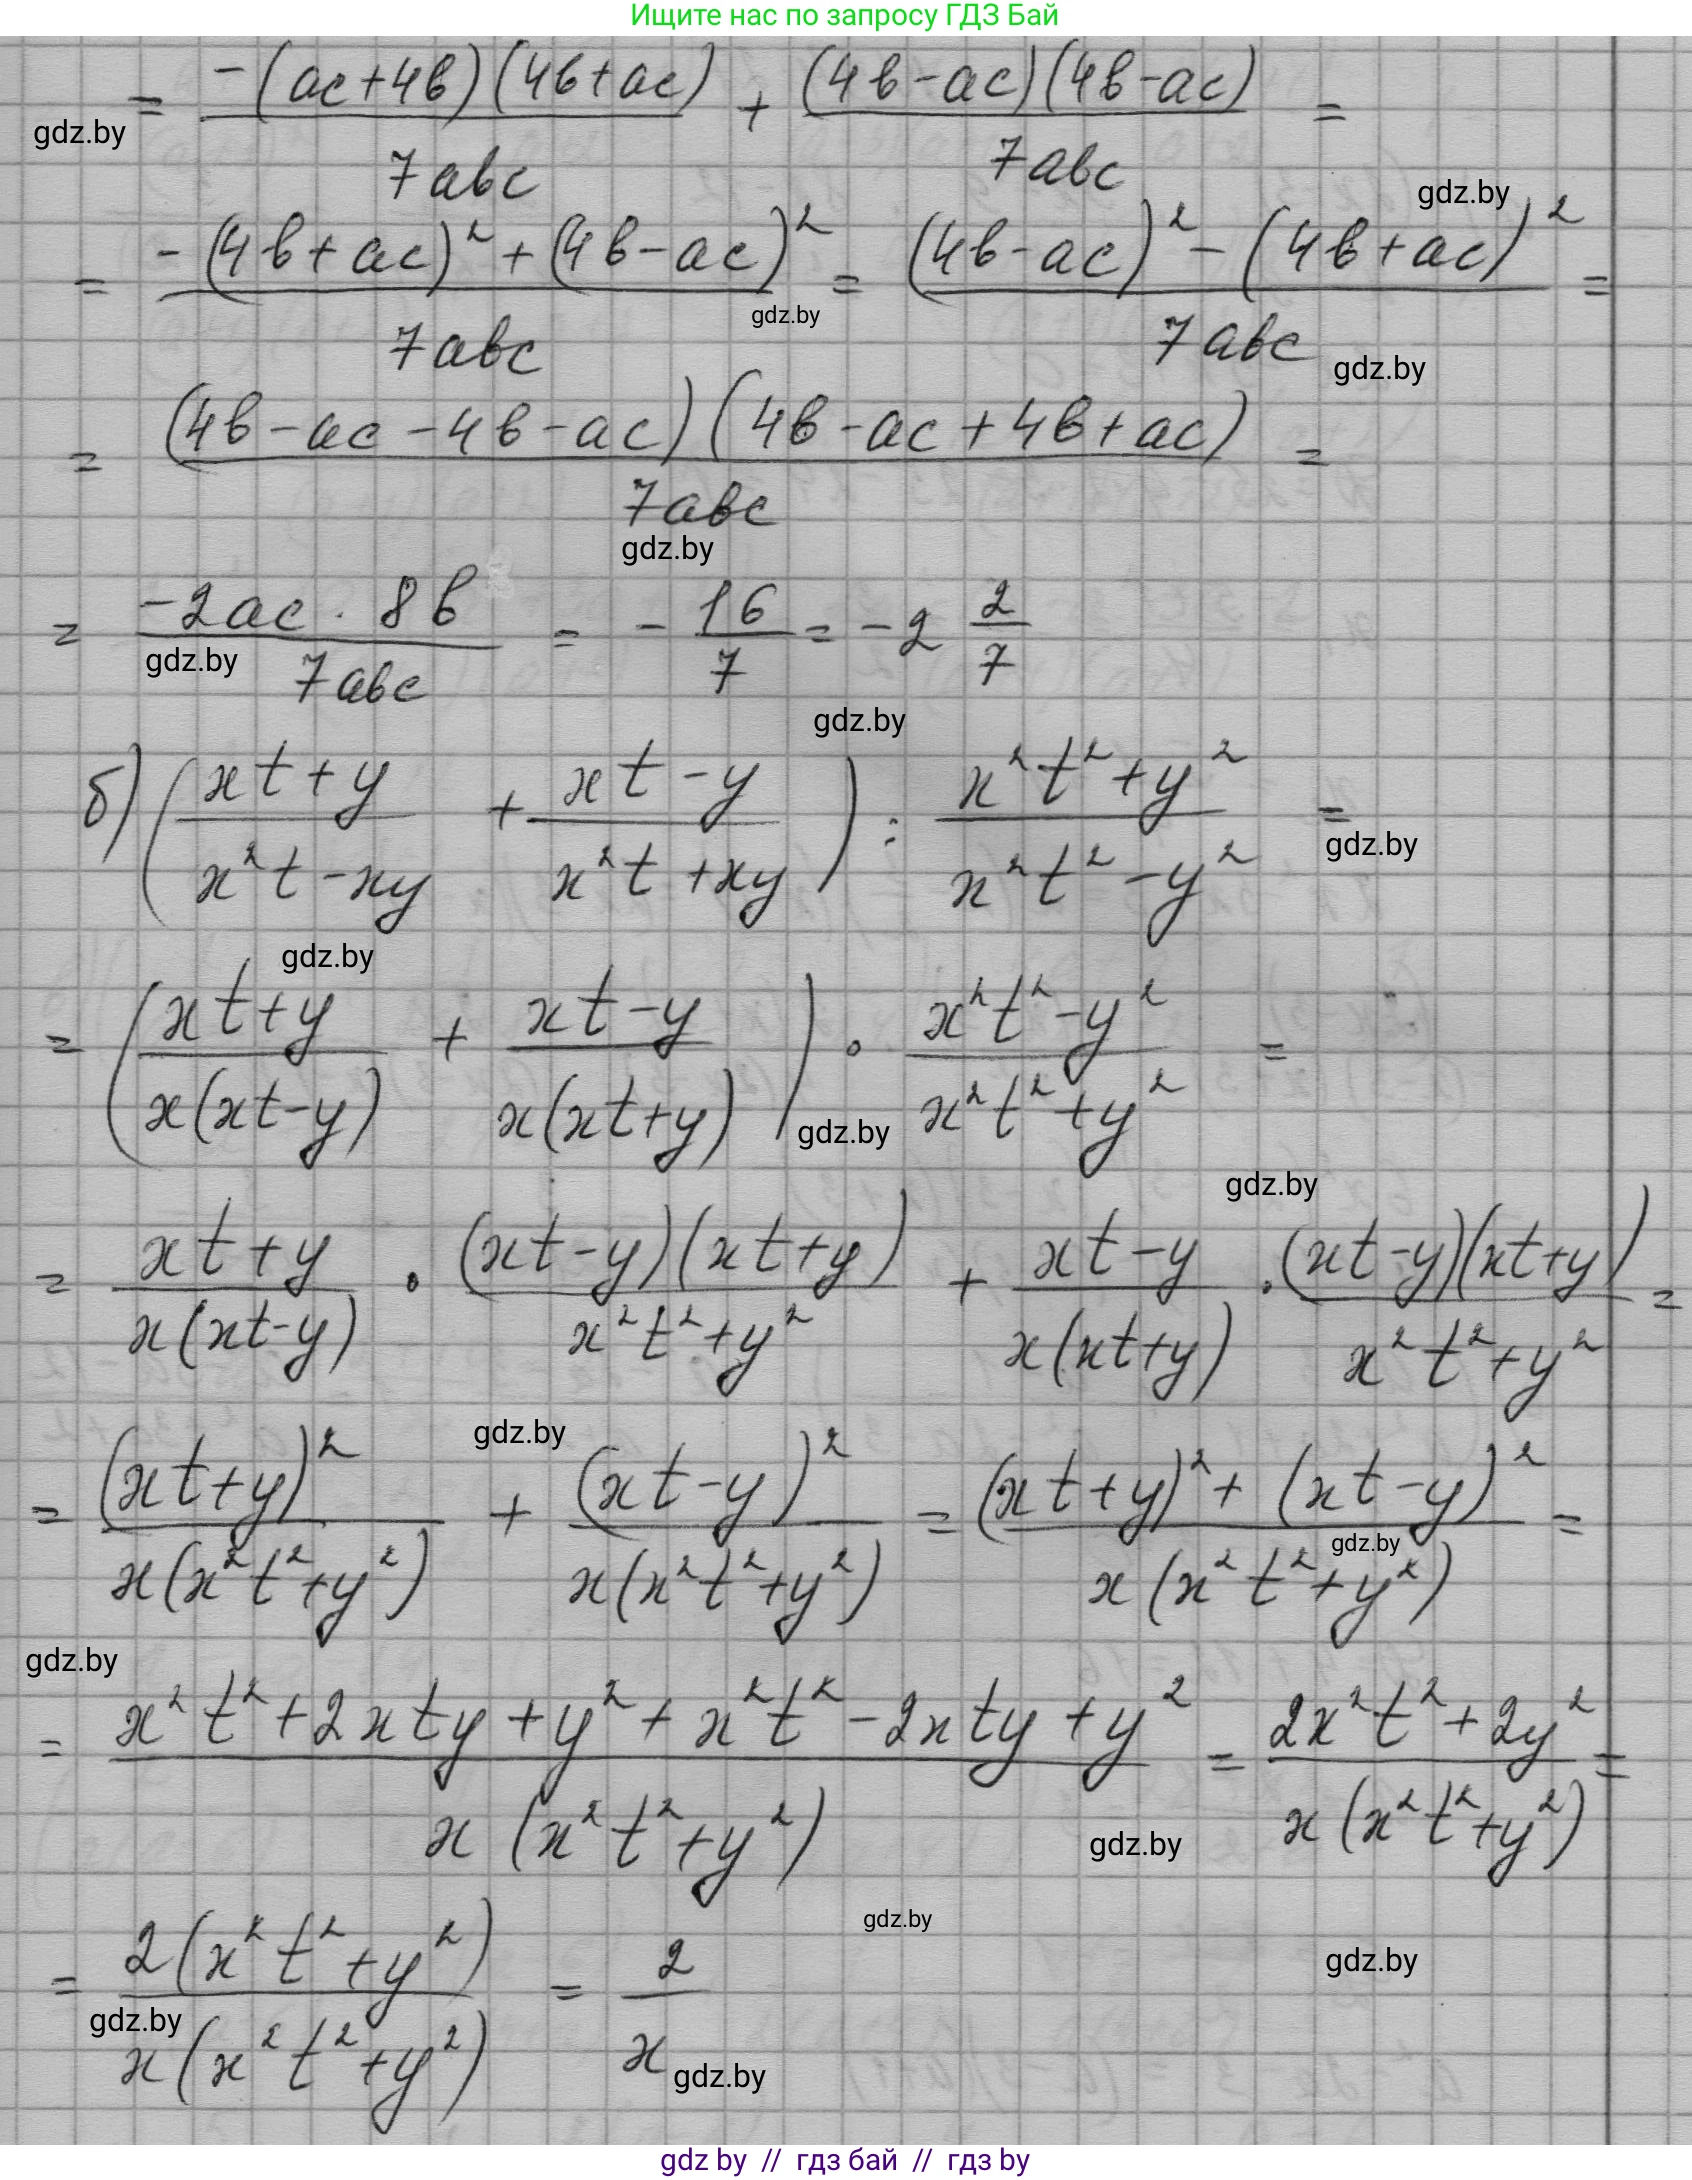 Ищите нас по запросу ГДЗ Бай
= -(ac+4b)(4b+ac)/7abc + (4b-ac)(4b-ac)/7abc =
gdz.by
gdz.by
= (-(4b+ac)²+(4b-ac)²)/7abc = ((4b-ac)²-(4b+ac)²)/7abc =
gdz.by
gdz.by
= (4b-ac-4b-ac)(4b-ac+4b+ac)/7abc =
gdz.by
= -2ac · 8b/7abc = - 16/7 = -2 2/7
gdz.by
gdz.by
б) ((xt+y)/(x²t-xy) + (xt-y)/(x²t+xy)) : (x²t²+y²)/(x²t²-y²) =
gdz.by
gdz.by
= ((xt+y)/x(xt-y) + (xt-y)/x(xt+y)) · (x²t²-y²)/(x²t²+y²) =
gdz.by
gdz.by
= (xt+y)/x(xt-y) · (xt-y)(xt+y)/(x²t²+y²) + (xt-y)/x(xt+y) · (xt-y)(xt+y)/(x²t²+y²) =
gdz.by
= (xt+y)²/x(x²t²+y²) + (xt-y)²/x(x²t²+y²) = ((xt+y)²+(xt-y)²)/x(x²t²+y²) =
gdz.by
gdz.by
= (x²t²+2xty+y²+x²t²-2xty+y²)/x(x²t²+y²) = (2x²t²+2y²)/x(x²t²+y²) =
gdz.by
gdz.by
= 2(x²t²+y²)/x(x²t²+y²) = 2/x
gdz.by
gdz.by
gdz.by
gdz by // гдз бай // гдз by